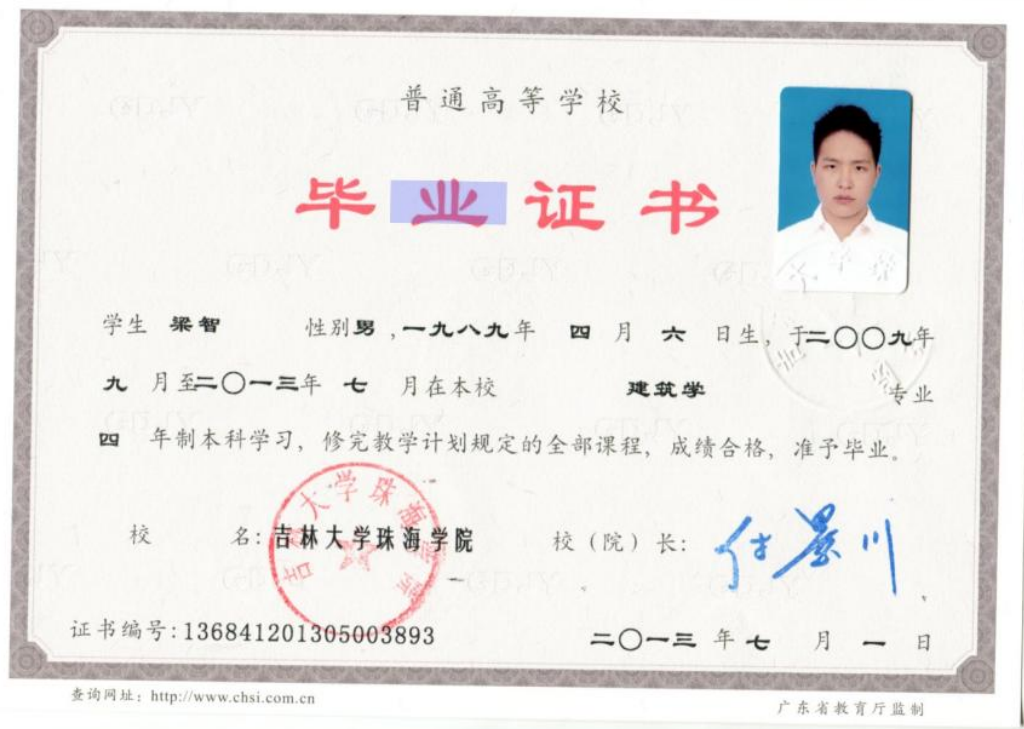 普通高等学校
毕业证书
学生 梁智 性别男，一九八九年 四 月 六 日生，于二〇〇九年
九 月至二〇一三年 七 月在本校 建筑学 专业
四 年制本科学习，修完教学计划规定的全部课程，成绩合格，准予毕业。
校 名：吉林大学珠海学院 校（院）长：付景川
吉林大学珠海学院
证书编号：136841201305003893 二〇一三 年 七 月 一 日
查询网址：http://www.chsi.com.cn 广东省教育厅监制